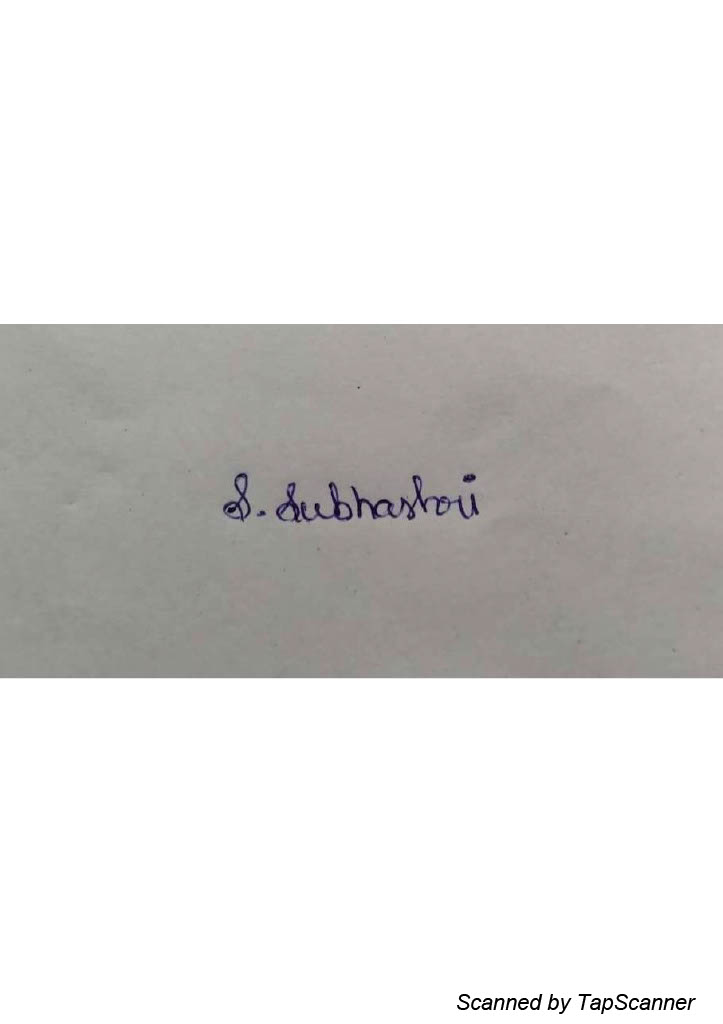 S. Subhashri
Scanned by TapScanner